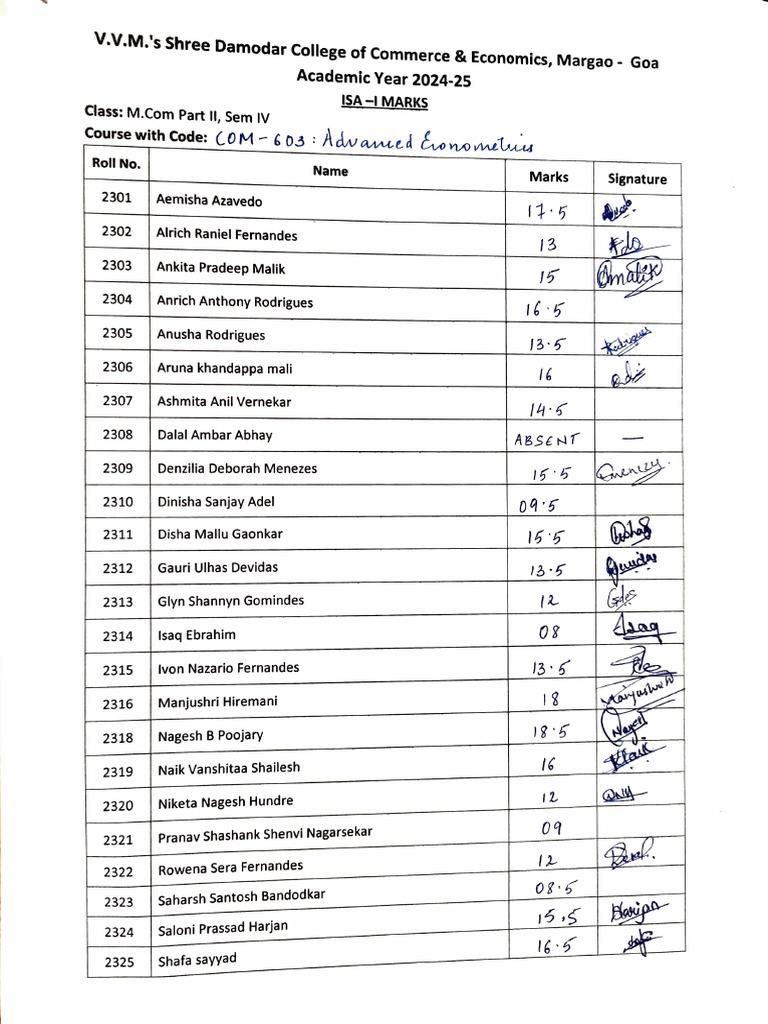 V.V.M.'s Shree Damodar College of Commerce & Economics, Margao - Goa
Academic Year 2024-25
ISA –I MARKS
Class: M.Com Part II, Sem IV
Course with Code: COM-603: Advanced Econometrics
Roll No. Name Marks Signature
2301 Aemisha Azavedo 17.5
2302 Alrich Raniel Fernandes 13 Fds
2303 Ankita Pradeep Malik 15 Amalik
2304 Anrich Anthony Rodrigues 16.5
2305 Anusha Rodrigues 13.5 Rodrigues
2306 Aruna khandappa mali 16
2307 Ashmita Anil Vernekar 14.5
2308 Dalal Ambar Abhay ABSENT —
2309 Denzilia Deborah Menezes 15.5
2310 Dinisha Sanjay Adel 09.5
2311 Disha Mallu Gaonkar 15.5
2312 Gauri Ulhas Devidas 13.5
2313 Glyn Shannyn Gomindes 12
2314 Isaq Ebrahim 08 Isaq
2315 Ivon Nazario Fernandes 13.5
2316 Manjushri Hiremani 18
2318 Nagesh B Poojary 18.5 Nagesh
2319 Naik Vanshitaa Shailesh 16
2320 Niketa Nagesh Hundre 12
2321 Pranav Shashank Shenvi Nagarsekar 09
2322 Rowena Sera Fernandes 12
2323 Saharsh Santosh Bandodkar 08.5
2324 Saloni Prassad Harjan 15.5 Harijan
2325 Shafa sayyad 16.5